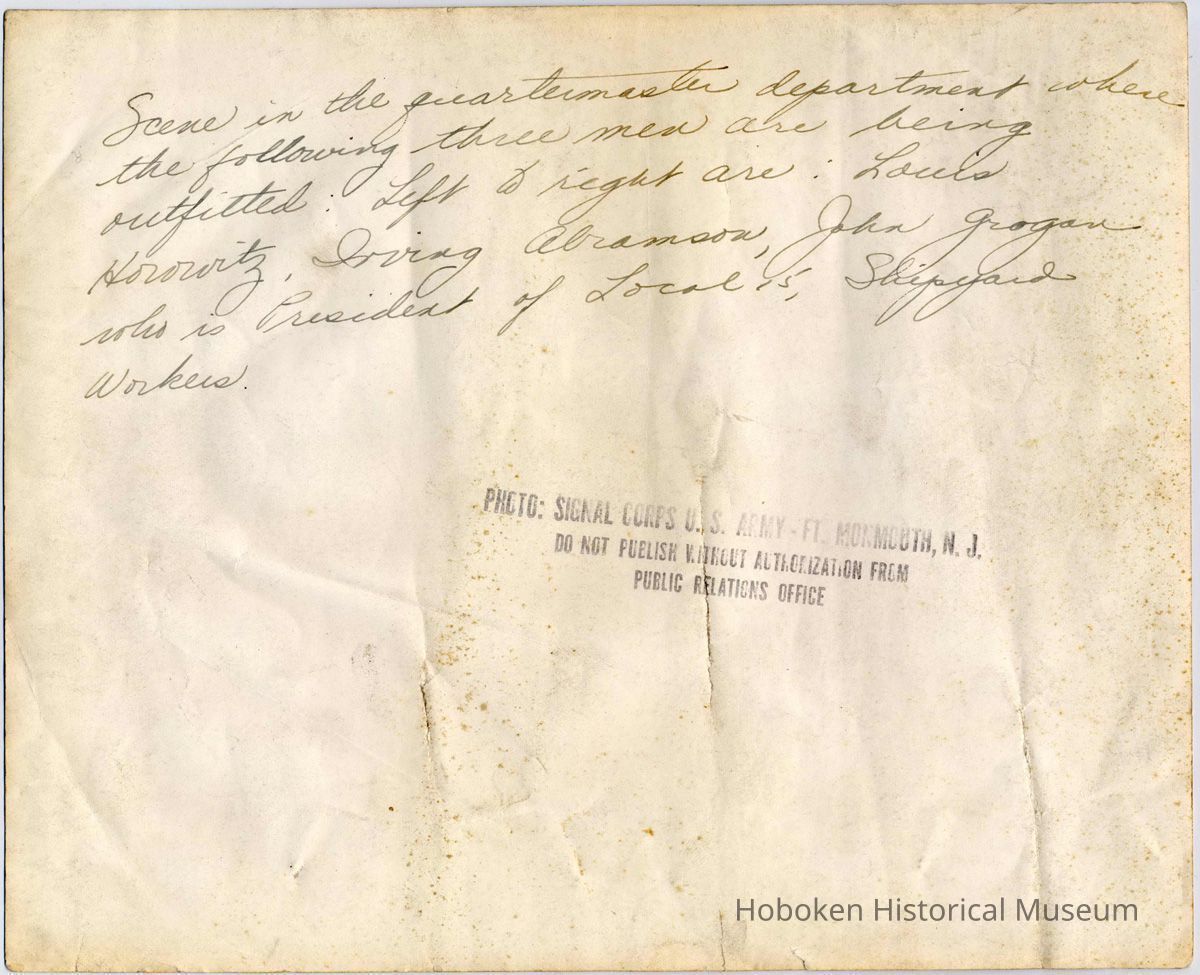 Scene in the quartermaster department where
the following three men are being
outfitted. Left to right are: Louis
Horowitz, Irving Abramson, John Grogan
who is President of Local 15, Shipyard
Workers.
PHOTO: SIGNAL CORPS U. S. ARMY - FT. MONMOUTH, N. J.
DO NOT PUBLISH WITHOUT AUTHORIZATION FROM
PUBLIC RELATIONS OFFICE
Hoboken Historical Museum